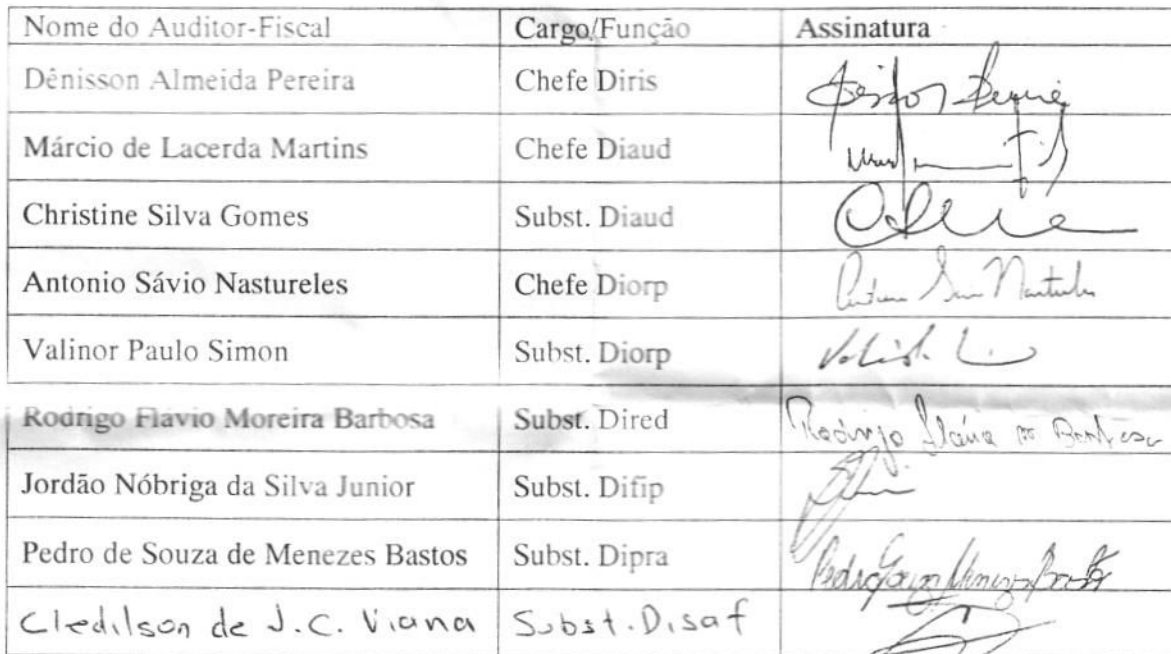 Nome do Auditor-Fiscal Cargo/Função Assinatura
Dênisson Almeida Pereira Chefe Diris
Márcio de Lacerda Martins Chefe Diaud
Christine Silva Gomes Subst. Diaud
Antonio Sávio Nastureles Chefe Diorp
Valinor Paulo Simon Subst. Diorp
Rodrigo Flávio Moreira Barbosa Subst. Dired Rodrigo Flávio M Barbosa
Jordão Nóbriga da Silva Junior Subst. Difip
Pedro de Souza de Menezes Bastos Subst. Dipra
Cledilson de J.C. Viana Subst. Disaf